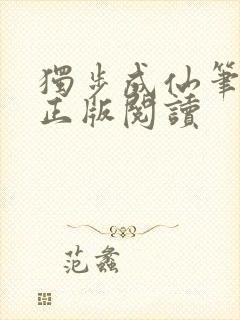 獨步成仙筆
正版閱讀
范蠡